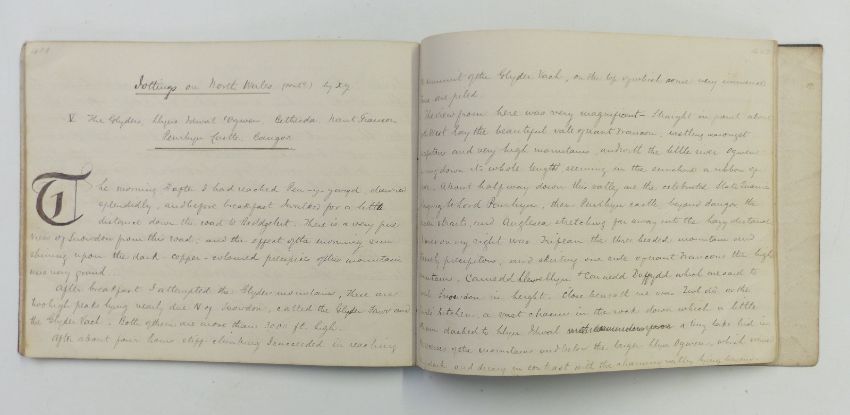 Jottings on North Wales by X Y
V The Glyders, Llyns Idwal & Ogwen Bethesda Nant Francon
Penrhyn Castle. Bangor
The morning after I had reached Pen-y-gwryd, dawned
splendidly, and before breakfast I walked for a little
distance down the road to Beddgelert. There is a very fine
view of Snowdon from this road, and the effect of the morning sun
shining upon the dark copper-coloured precipices of the mountain
was very grand.
After breakfast I attempted the Glyder mountains, these are
two high peaks lying nearly due N of Snowdon, called the Glyder Fawr and
the Glyder Vach. Both of them are more than 3000 ft. high.
After about four hours stiff climbing I succeeded in reaching
summit of the Glyder Vach, on the top of which some very immense
are piled.
The view from here was very magnificent - Straight in front about
lay the beautiful vale of Nant Francon, nestling amongst
and very high mountains, and with the little river Ogwen
down its whole length, seeming in the sunshine a ribbon of
About halfway down this valley are the celebrated Slate Quarries
to Lord Penrhyn, then Penrhyn castle, beyond Bangor the
straits, and Anglesea stretching far away into the hazy distance
on my right was Trifaen the three headed mountain and
precipitous, and skirting one side of Nant Francon the high
mountains, Carnedd Llewellyn & Carnedd Dafydd which are said to
Snowdon in height. Close beneath me was Twll dû or the
kitchen, a vast chasm in the rock down which a little
dashed to Llyn Idwal a tiny lake hid in
of the mountains and below the larger Llyn Ogwen, which
dark and dreary in contrast with the charming valley lying